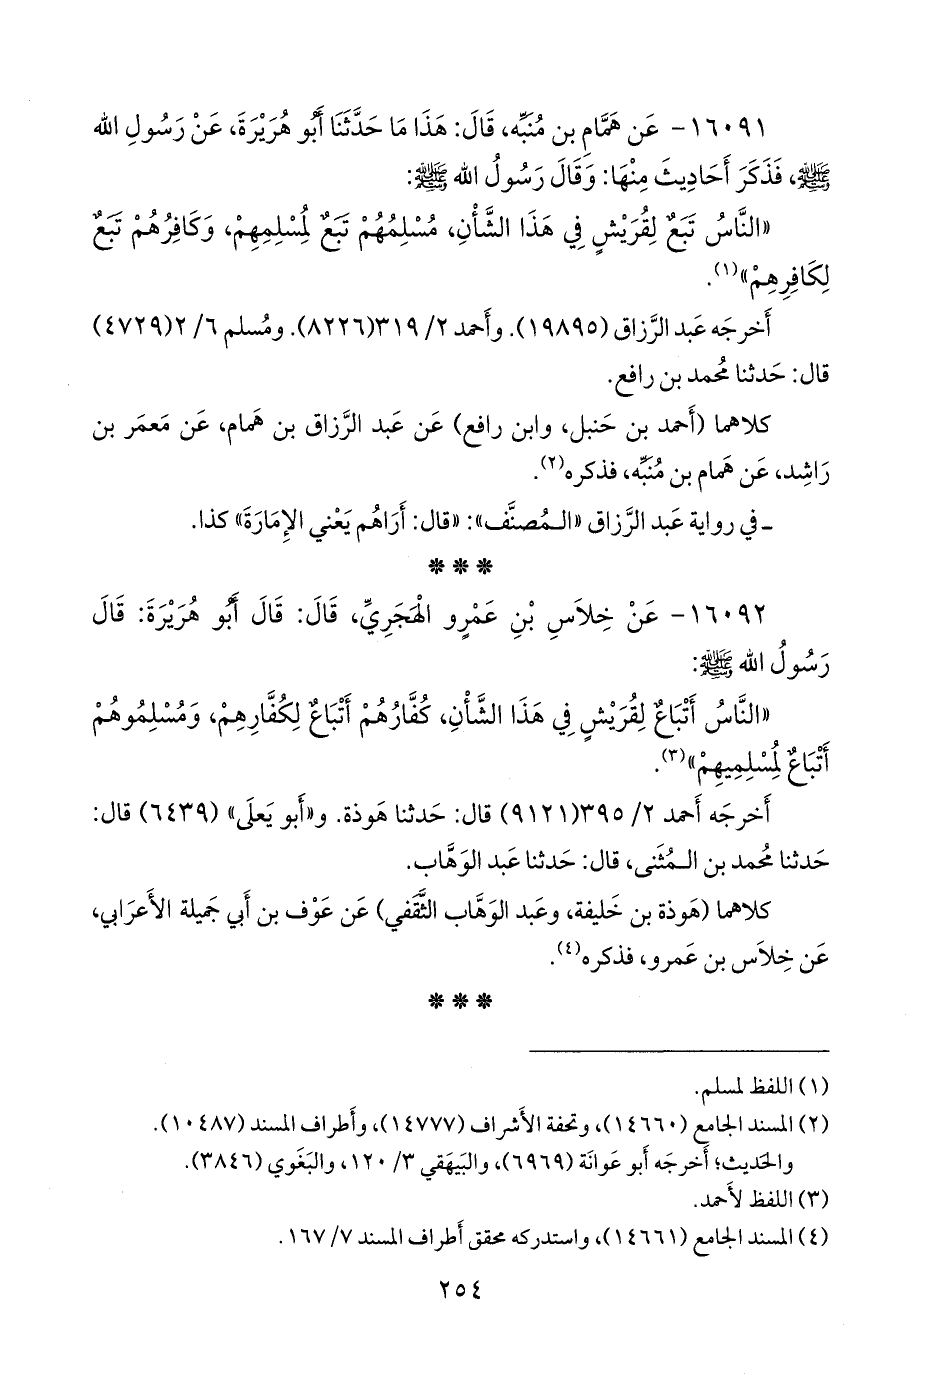 ١٦٠٩١- عَن هَمَّام بن مُنَبِّه، قَالَ: هَذَا مَا حَدَّثَنَا أَبُو هُرَيْرَةَ، عَنْ رَسُولِ الله
ﷺ، فَذَكَرَ أَحَادِيثَ مِنْهَا: وَقَالَ رَسُولُ الله ﷺ:
«النَّاسُ تَبَعٌ لِقُرَيْشٍ فِي هَذَا الشَّأْنِ، مُسْلِمُهُمْ تَبَعٌ لِمُسْلِمِهِمْ، وَكَافِرُهُمْ تَبَعٌ
لِكَافِرِهِمْ»(١).
أَخرجَه عَبد الرَّزاق (١٩٨٩٥). وأَحمد ٢/ ٣١٩(٨٢٢٦). ومُسلم ٦/ ٢(٤٧٢٩)
قال: حَدثنا مُحمد بن رافع.
كلاهما (أَحمد بن حَنبل، وابن رافع) عَن عَبد الرَّزاق بن هَمام، عَن مَعمَر بن
رَاشِد، عَن هَمام بن مُنَبِّه، فذكره(٢).
ـ في رواية عَبد الرَّزاق «الـمُصنَّف»: «قال: أَرَاهُم يَعْني الإِمَارَةَ» كذا.
* * *
١٦٠٩٢- عَنْ خِلَاسِ بْنِ عَمْرٍو الْهَجَرِيِّ، قَالَ: قَالَ أَبُو هُرَيْرَةَ: قَالَ
رَسُولُ الله ﷺ:
«النَّاسُ أَتْبَاعٌ لِقُرَيْشٍ فِي هَذَا الشَّأْنِ، كُفَّارُهُمْ أَتْبَاعٌ لِكُفَّارِهِمْ، وَمُسْلِمُوهُمْ
أَتْبَاعٌ لِمُسْلِمِيهِمْ»(٣).
أَخرجَه أَحمد ٢/ ٣٩٥(٩١٢١) قال: حَدثنا هَوذة. و«أَبو يَعلَى» (٦٤٣٩) قال:
حَدثنا مُحمد بن الـمُثنى، قال: حَدثنا عَبد الوَهَّاب.
كلاهما (هَوذة بن خَليفة، وعَبد الوَهاب الثَّقَفي) عَن عَوْف بن أَبي جَميلة الأَعرَابي،
عَن خِلاَس بن عَمرو، فذكره(٤).
* * *
(١) اللفظ لمسلم.
(٢) المسند الجامع (١٤٦٦٠)، وتحفة الأَشراف (١٤٧٧٧)، وأَطراف المسند (١٠٤٨٧).
والحَديث؛ أَخرجَه أَبو عَوانَة (٦٩٦٩)، والبَيهَقي ٣/ ١٢٠، والبَغَوي (٣٨٤٦).
(٣) اللفظ لأَحمد.
(٤) المسند الجامع (١٤٦٦١)، واستدركه محقق أَطراف المسند ٧/ ١٦٧.
٢٥٤